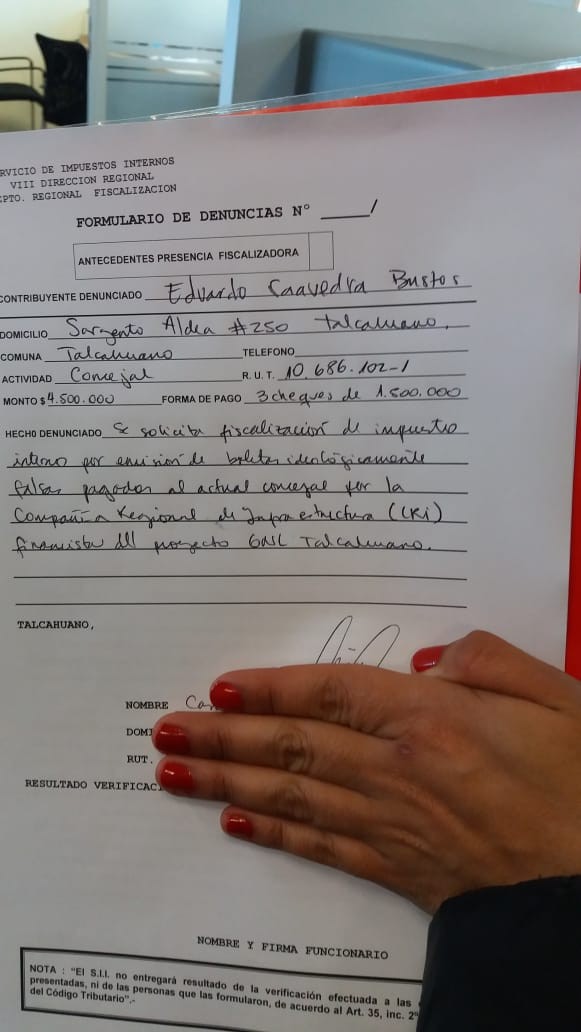 RVICIO DE IMPUESTOS INTERNOS
VIII DIRECCION REGIONAL
EPTO. REGIONAL FISCALIZACION
FORMULARIO DE DENUNCIAS N° _____/
ANTECEDENTES PRESENCIA FISCALIZADORA
CONTRIBUYENTE DENUNCIADO Eduardo Saavedra Bustos
DOMICILIO Sargento Aldea #250 Talcahuano.
COMUNA Talcahuano TELEFONO
ACTIVIDAD Concejal R.U.T. 10.686.102-1
MONTO $ 4.500.000 FORMA DE PAGO 3 cheques de 1.500.000
HECHO DENUNCIADO Se solicita fiscalización de impuesto
interno por emisión de boletas ideológicamente
falsas pagadas al actual concejal por la
Compañia Regional de Infraestructura (CRi)
financista del proyecto GNL Talcahuano.
TALCAHUANO,
NOMBRE Ca
DOMI
RUT.
RESULTADO VERIFICAC
NOMBRE Y FIRMA FUNCIONARIO
NOTA : "El S.I.I. no entregará resultado de la verificación efectuada a las
presentadas, ni de las personas que las formularon, de acuerdo al Art. 35, inc. 2°
del Código Tributario".-